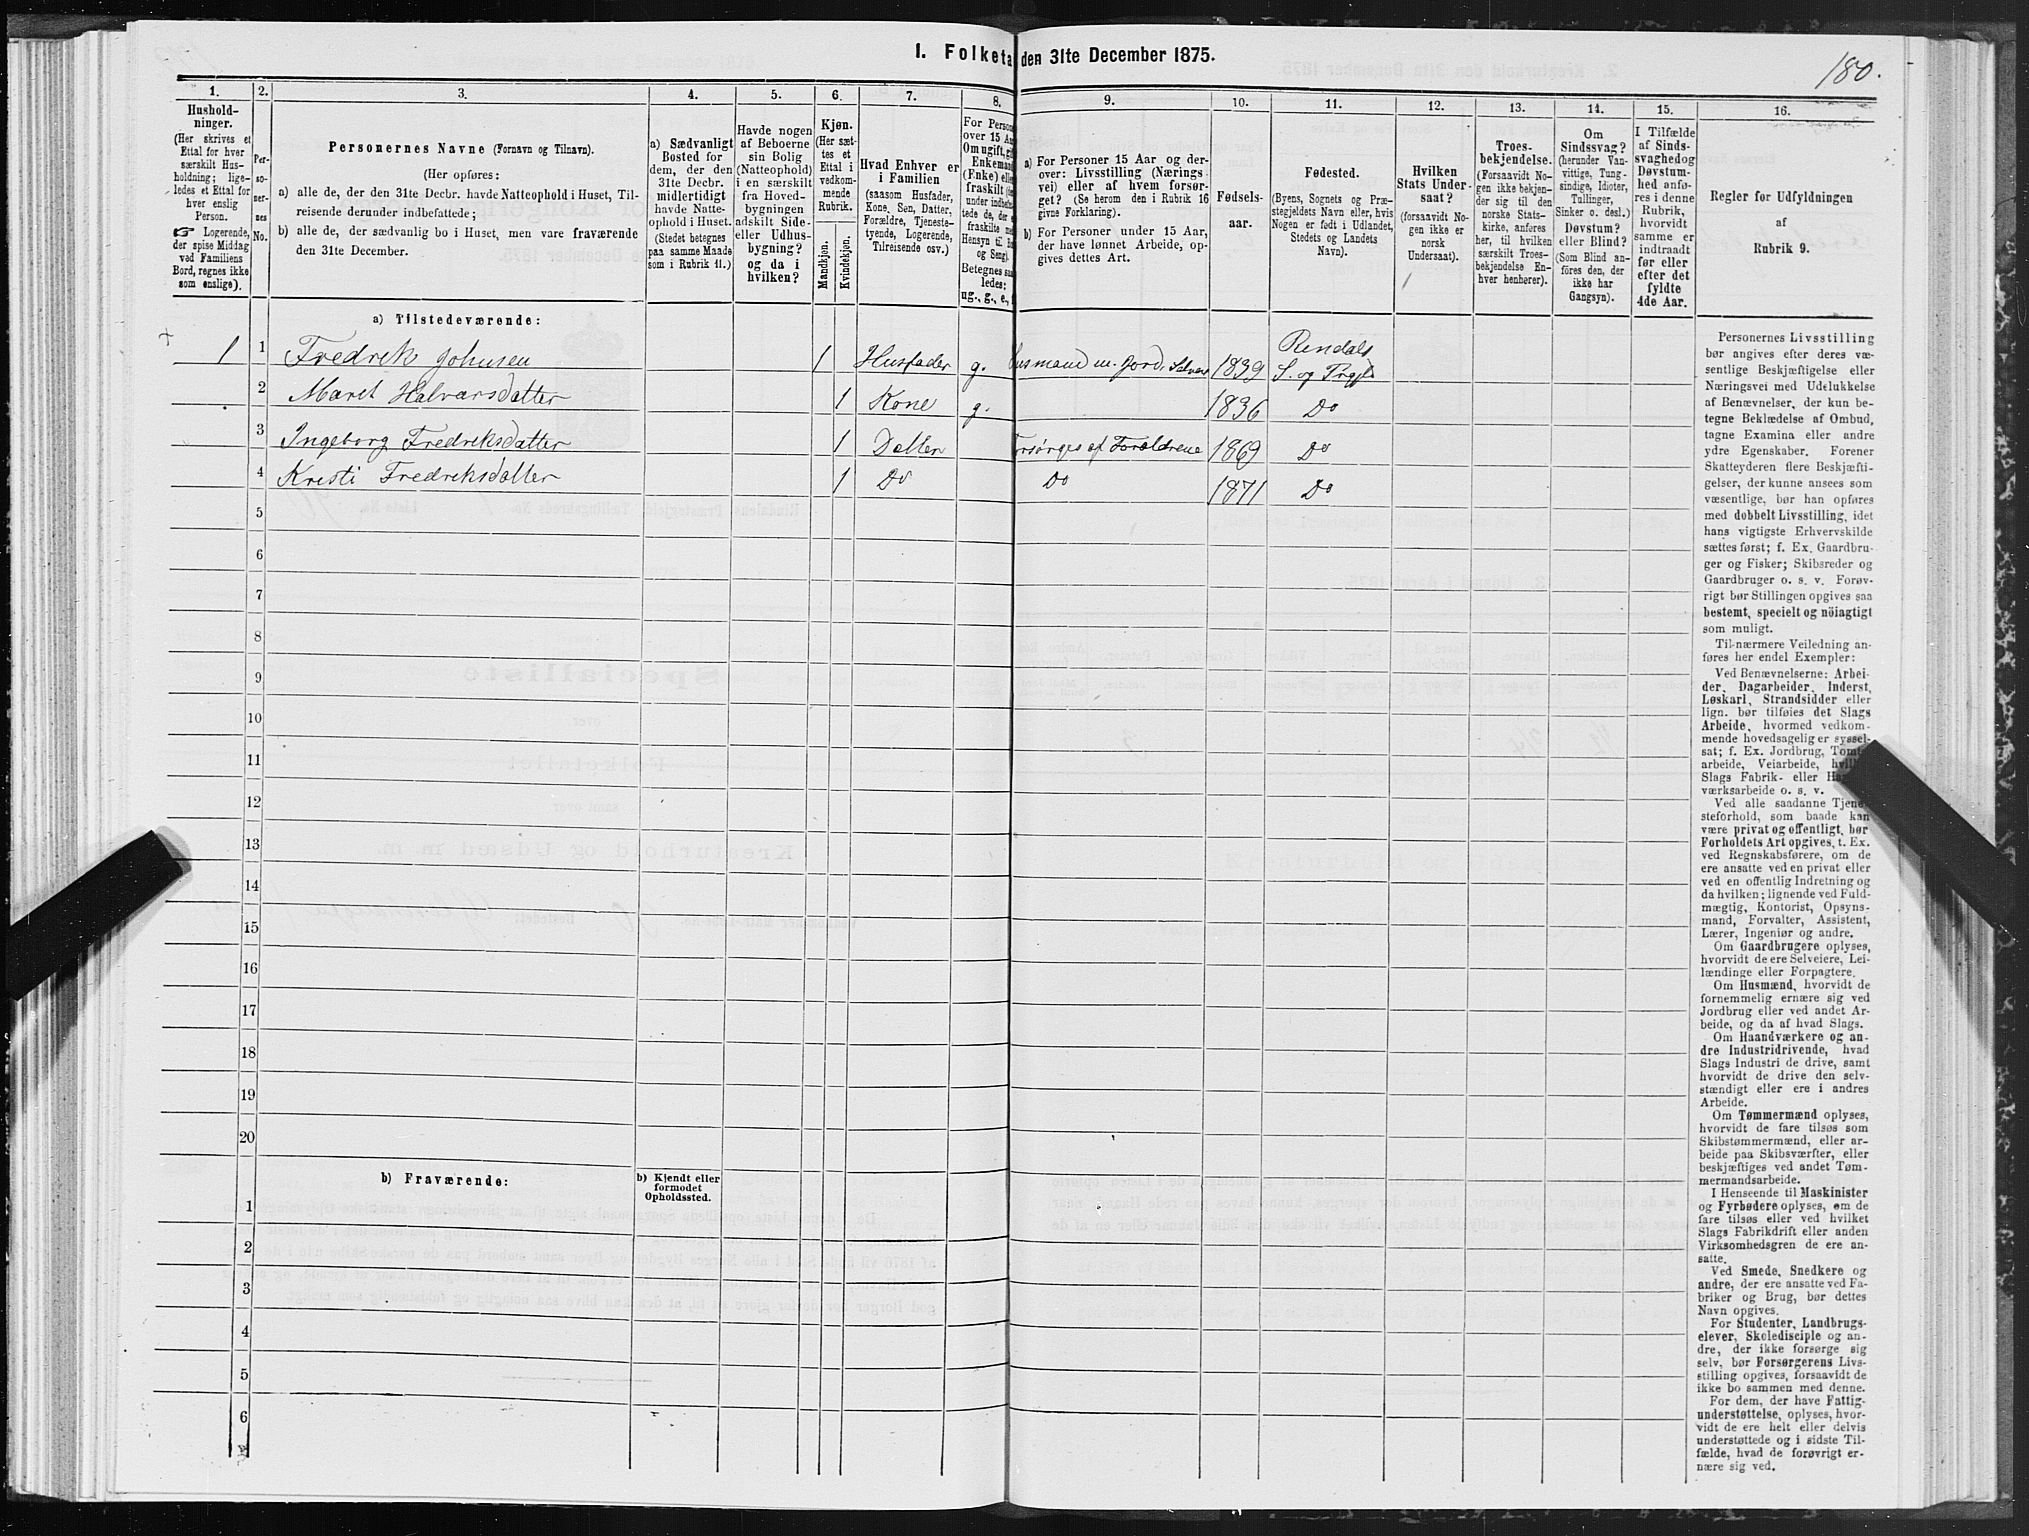 I. Folketa den 31te December 1875.
180.
1.
2.
3.
4.
5.
6.
7.
8.
9.
10.
11.
12.
13.
14.
15.
16.
Hushold-
ninger.
(Her skrives et
Ettal for hver
særskilt Hus-
holdning; lige-
ledes et Ettal for
hver enslig
Person.
☞ Logerende,
der spise Middag
ved Familiens
Bord, regnes ikke
som enslige).
Per-
so-
ner-
nes
No.
Personernes Navne (Fornavn og Tilnavn).
(Her opføres:
a) alle de, der den 31te Decbr. havde Natteophold i Huset, Til-
reisende derunder indbefattede;
b) alle de, der sædvanlig bo i Huset, men vare fraværende
den 31te December.
a) Sædvanligt
Bosted for
dem, der den
31te Decbr.
midlertidigt
havde Natte-
ophold i Huset.
(Stedet betegnes
paa samme Maade
som i Rubrik 11.)
Havde nogen
af Beboerne
sin Bolig
(Natteophold)
i en særskilt
fra Hoved-
bygningen
adskilt Side-
eller Udhus-
bygning?
og da i
hvilken?
Kjøn.
(Her sæt-
tes et
Ettal i
vedkom-
mende
Rubrik.
Mandkjøn.
Kvindekjøn.
Hvad Enhver er
i Familien
(saasom Husfader,
Kone, Søn, Datter,
Forældre, Tjeneste-
tyende, Logerende,
Tilreisende osv.)
For Person
over 15 Aa
Om ugift, gif
Enkemand
(Enke) elle
fraskilt
under indbefat-
tede de, der e
fraskilte
Hensyn til
og Seng).
Betegnes saa
ledes:
ug., g., e.,
a) For Personer 15 Aar og der-
over: Livsstilling (Nærings-
vei) eller af hvem forsør-
get? (Se herom den i Rubrik 16
givne Forklaring).
b) For Personer under 15 Aar,
der have lønnet Arbeide, op-
gives dettes Art.
Fødsels-
aar.
Fødested.
(Byens, Sognets og Præ-
stegjeldets Navn eller, hvis
Nogen er født i Udlandet,
Stedets og Landets
Navn).
Hvilken
Stats Under-
saat?
(forsaavidt No-
gen ikke er
norsk
Undersaat).
Troes-
bekjendelse.
(Forsaavidt No-
gen ikke bekjen-
der sig til den
norske Stats-
kirke, anføres
her, til hvilken
særskilt Troes-
bekjendelse En-
hver henhører).
Om
Sindssvag?
(herunder Van-
vittige, Tung-
sindige, Idioter,
Tullinger,
Sinker o. desl.)
Døvstum?
eller Blind?
(Som Blind an-
føres den, der
ikke har
Gangsyn).
I Tilfælde
af Sinds-
svaghed og
Døvstum-
hed anfø-
res i denne
Rubrik,
hvorvidt
samme er
indtraadt
før eller
efter det
fyldte
4de Aar.
Regler for Udfyldningen
af
Rubrik 9.
a) Tilstedeværende:
1 1 Fredrik Johnsen 1 Husfader g. usmand m. Jord, Selvei 1839 Rendals
S. og Prgjl
2 Maret Halvarsdatter 1 Kone g. 1836 Do
3 Ingeborg Fredriksdatter 1 Datter orsørges af Forældrene 1869 Do
4 Kresti Fredriksdatter 1 Do Do 1871 Do
5
6
7
8
9
10
11
12
13
14
15
16
17
18
19
20
b) Fraværende:
b) Kjendt eller
formodet
Opholdssted.
1
2
3
4
5
6
Personernes Livsstilling
bør angives efter deres væ-
sentlige Beskjæftigelse eller
Næringsvei med Udelukkelse
af Benævnelser, der kun be-
tegne Beklædelse af Ombud,
tagne Examina eller andre
ydre Egenskaber. Forener
Skatteyderen flere Beskjæfti-
gelser, der kunne ansees som
væsentlige, bør han opføres
med dobbelt Livsstilling, idet
hans vigtigste Erhvervskilde
sættes først; f. Ex. Gaardbru-
ger og Fisker; Skibsreder og
Gaardbruger o. s. v. Forøv-
rigt bør Stillingen opgives saa
bestemt, specielt og nöiagtigt
som muligt.
Til nærmere Veiledning an-
føres her endel Exempler:
Ved Benævnelserne: Arbei-
der, Dagarbeider, Inderst,
Løskarl, Strandsidder eller
lign. bør tilføies det Slags
Arbeide, hvormed vedkom-
mende hovedsagelig er syssel-
sat; f. Ex. Jordbrug, Tomt-
arbeide, Veiarbeide, hvilk
Slags Fabrik- eller Ha
værksarbeide o. s. v.
Ved alle saadanne Tjene-
steforhold, som baade kan
være privat og offentligt, bør
Forholdets Art opgives, t. Ex.
ved Regnskabsførere, om de
ere ansatte ved en privat eller
ved en offentlig Indretning og
da hvilken; lignende ved Fuld-
mægtig, Kontorist, Opsyns-
mand, Forvalter, Assistent,
Lærer, Ingeniør og andre.
Om Gaardbrugere oplyses,
hvorvidt de ere Selveiere, Lei-
lændinge eller Forpagtere.
Om Husmænd, hvorvidt de
fornemmelig ernære sig ved
Jordbrug eller ved andet Ar-
beide, og da af hvad Slags.
Om Haandværkere og an-
dre Industridrivende, hvad
Slags Industri de drive, samt
hvorvidt de drive den selv-
stændigt eller ere i andres
Arbeide.
Om Tømmermænd oplyses,
hvorvidt de fare tilsøs som
Skibstømmermænd, eller ar-
beide paa Skibsværfter, eller
beskjæftiges ved andet Tøm-
mermandsarbeide.
I Henseende til Maskinister
og Fyrbødere oplyses, om de
fare tilsøs eller ved hvilket
Slags Fabrikdrift eller anden
Virksomhedsgren de ere an-
satte.
Ved Smede, Snedkere og
andre, der ere ansatte ved Fa-
briker og Brug, bør dettes
Navn opgives.
For Studenter, Landbrugs-
elever, Skoledisciple og an-
dre, der ikke forsørge sig
selv, bør Forsørgerens Livs-
stilling opgives, forsaavidt de
ikke bo sammen med denne.
For dem, der have Fattig-
understøttelse, oplyses, hvor-
vidt de ere helt eller delvis
understøttede og i sidste Til-
fælde, hvad de forøvrigt er-
nære sig ved.